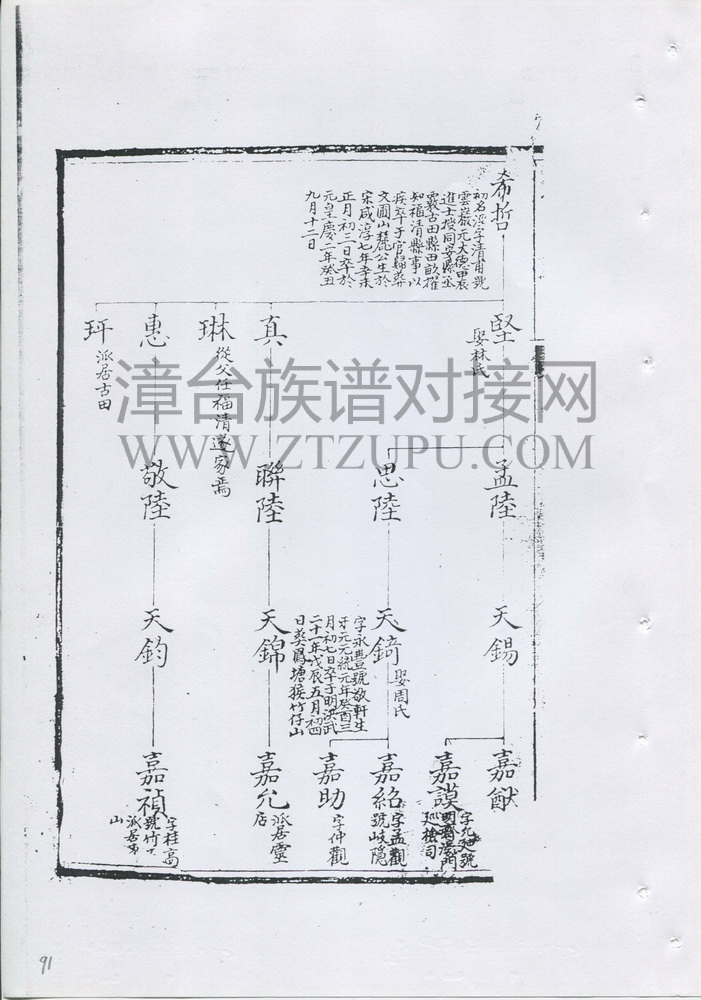 希哲
初名深字清甫號
雲巖元大德甲辰
進士授同安縣丞
覈古田縣田畝擢
知福清縣事以
疾卒于官歸葬
文圃山麓公生於
宋咸淳七年辛未
正月初三日卒於
元皇慶二年癸丑
九月十二日
堅
娶林氏
真
琳
從父任福清遂家焉
惠
玶
派居古田
漳台族谱对接网
WWW.ZTZUPU.COM
孟陸
思陸
聯陸
敬陸
天錫
天錡
娶周氏
字永豊號敬軒生
于元元統元年癸酉三
月初七日卒于明洪武
二十一年戊辰五月初四
日葬爲塘猴竹仔山
天錦
天鈞
嘉猷
嘉謨
字九
嘉紹
字孟觀
號岐隱
嘉助
字仲觀
嘉允
派居靈
店
嘉禎
字桂高
號竹
派居
山
91